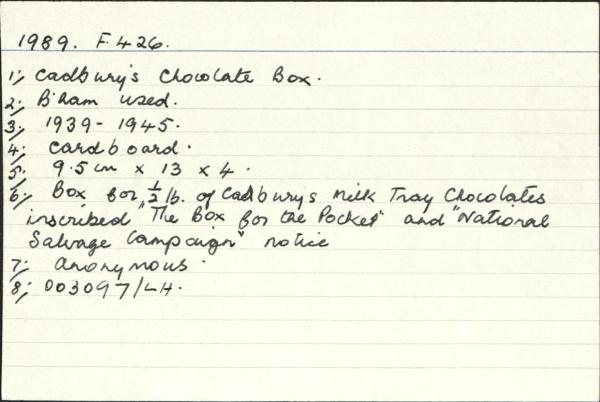 1989. F.426.
1; Cadbury's Chocolate Box.
2; B'ham used.
3; 1939-1945.
4; Cardboard.
5; 9.5cm x 13 x 4.
6; Box for ½ lb. of Cadburys Milk Tray Chocolates
inscribed "The Box for the Pocket" and "National
Salvage Campaign" notice
7; anonymous.
8; 003097/LH.